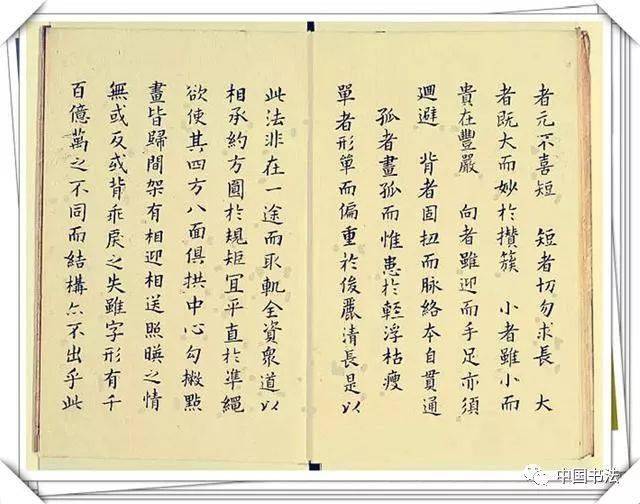 者元不喜短　短者切勿求長　大
者既大而妙於攢簇　小者雖小而
貴在豐嚴　向者雖迎而手足亦須
廻避　背者固扭而脉絡本自貫通
孤者畫孤而惟患於輕浮枯瘦
單者形單而偏重於俊麗清長是以
此法非在一途而取軌全資衆道以
相承約方圓於規矩冝平直於準繩
欲使其四方八面俱拱中心勾撇點
畫皆歸間架有相迎相送照暎之情
無或反或背乖戾之失雖字形有千
百億萬之不同而結構亦不出乎此
中国书法